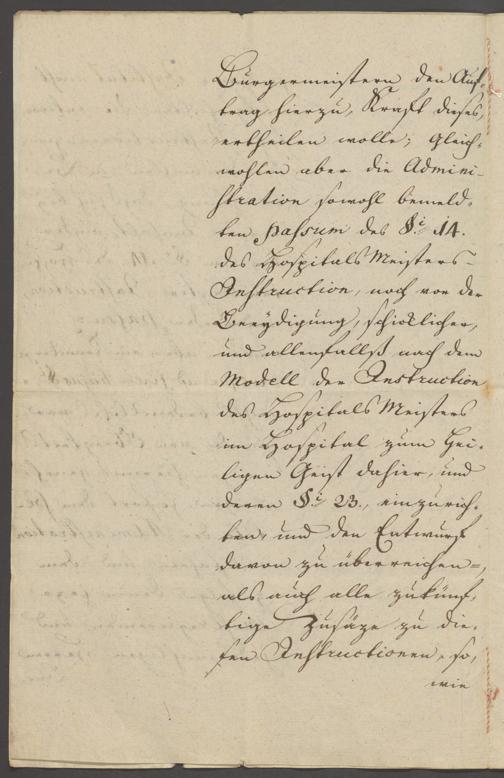 Bürgermeistern den Auf-
trag hierzu, Kraft dieses,
ertheilen wolle; Gleich-
wohlen aber die Admini-
stration sowohl bemeld-
ten passum des §.i 14.
des Hospitals Meisters-
Instruction, noch vor der
Beeydigung, schicklicher,
und allenfallß nach dem
Modell der Instruction
des Hospitals Meisters
im Hospital zum Hei-
ligen Geist dahier, und
deren §.i 23., einzurich-
ten, und den Entwurf
davon zu überreichen =,
als auch alle zukünf-
tige Zusäze zu die-
sen Instructionen, so,
wie